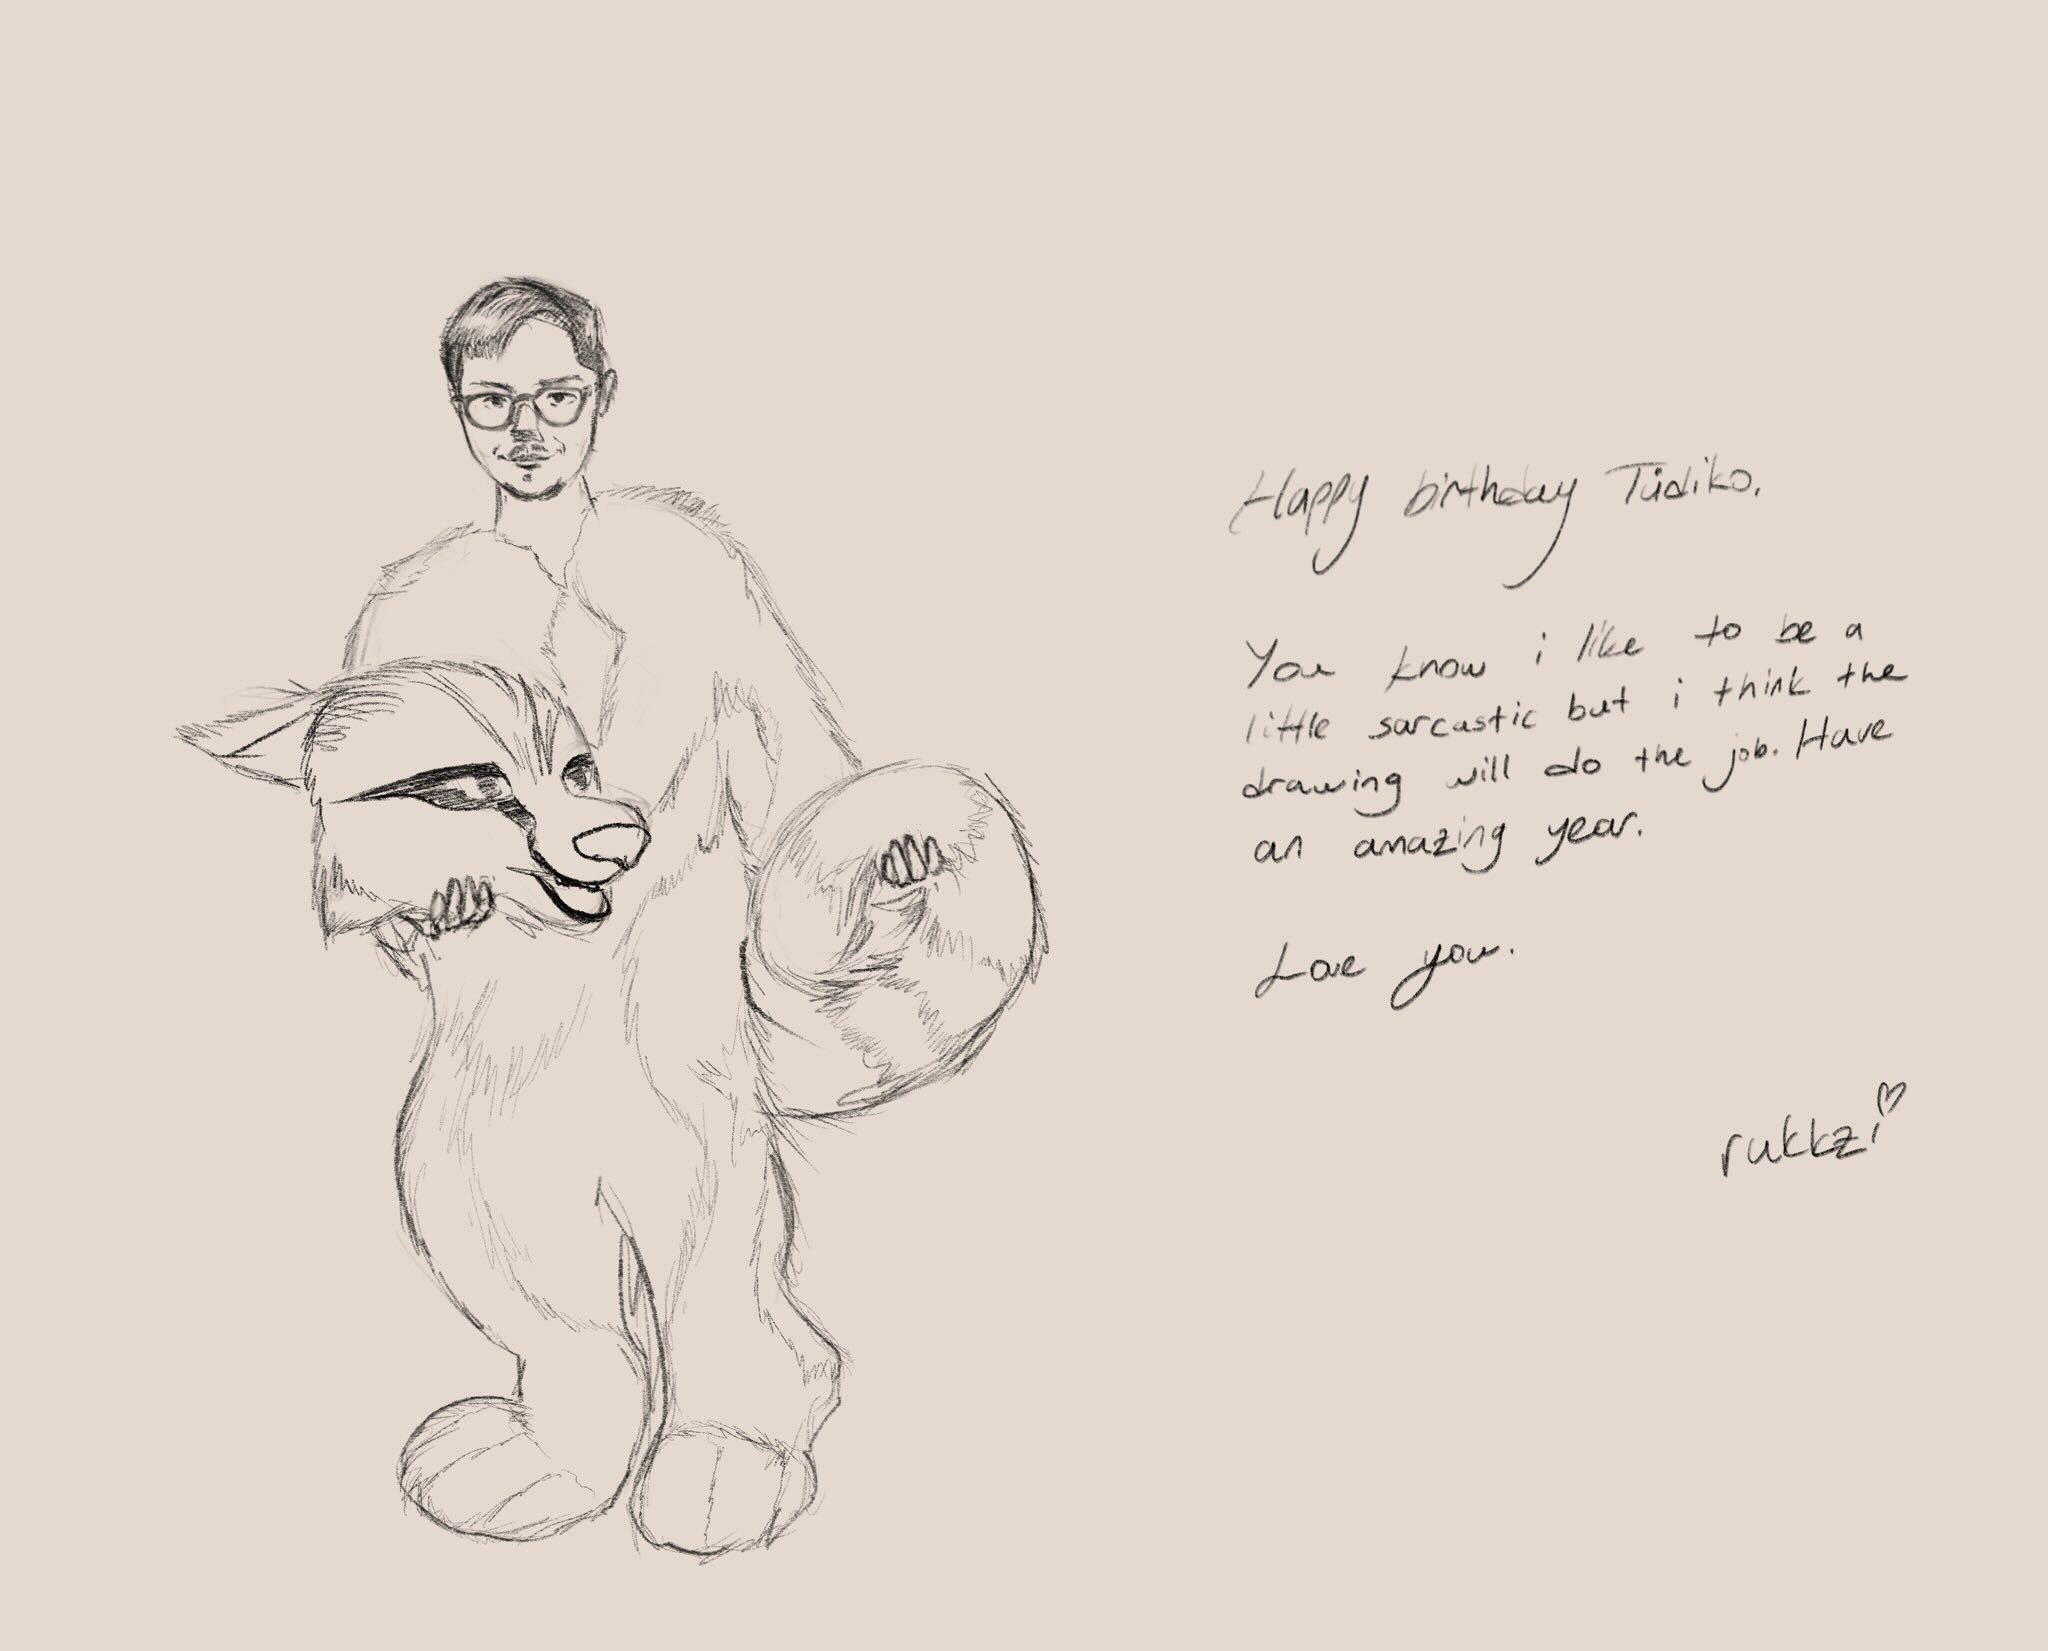 Happy birthday Tüdiko.
You know i like to be a
little sarcastic but i think the
drawing will do the job. Have
an amazing year.
Love you.
rukkzi